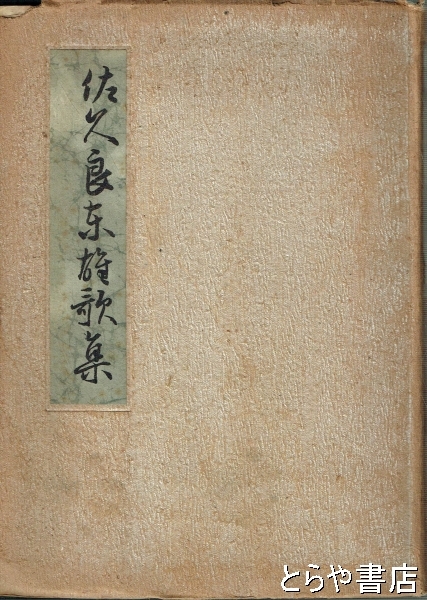 佐久良東雄歌集
とらや書店